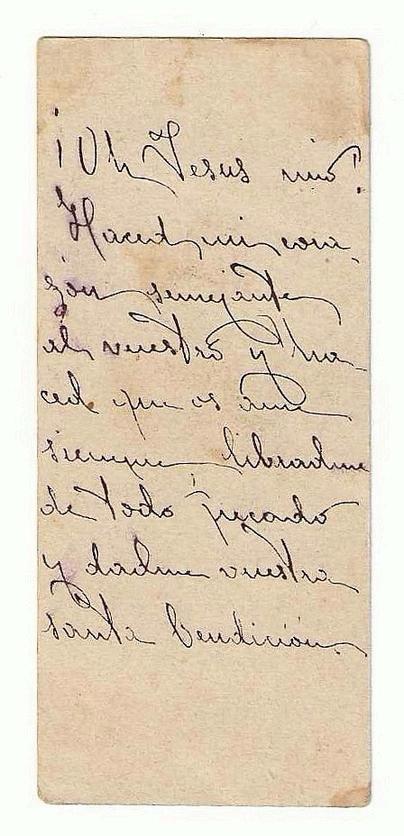 ¡Oh Jesus mio!
Haced mi cora-
zon semejante
al vuestro y ha-
ced que os ame
siempre libradme
de todo pecado
y dadme vuestra
santa bendición.